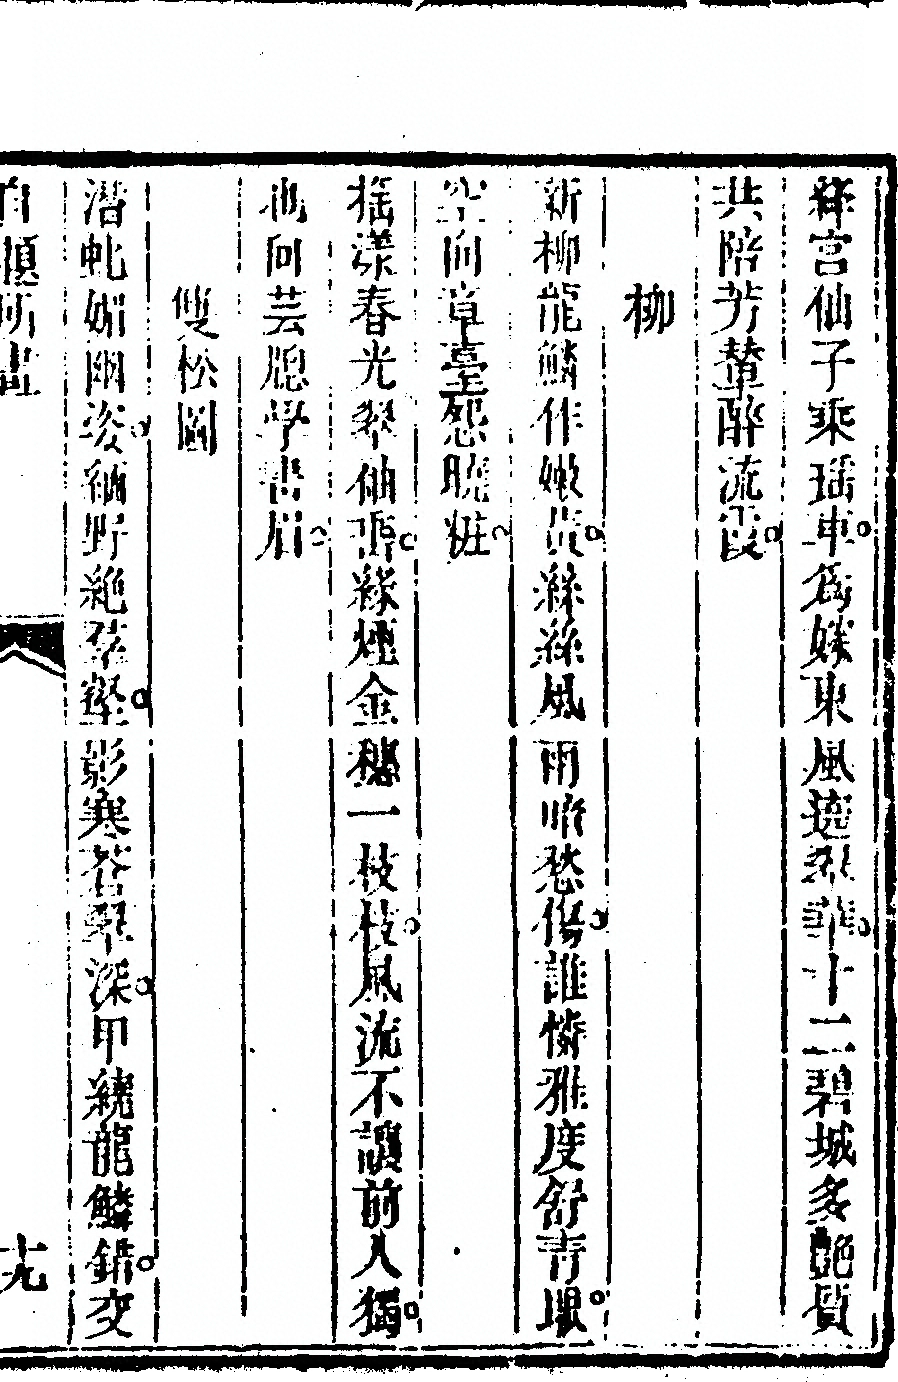 絳宮仙子乘瑤車為嫁東風遶翠華十二碧城多艷質
共陪芳輦醉流霞
柳
新柳龍鱗作嫩黃絲絲風雨暗愁傷誰憐雅度舒青眼
空向章臺怨曉粧
搖漾春光翠仙霑綠煙金穗一枝枝風流不讓前人獨
也向芸牕學畫眉
雙松圖
潛虬媚幽姿緬野絕壑影寒蒼翠深甲繞龍鱗錯交
自題所畫
十九